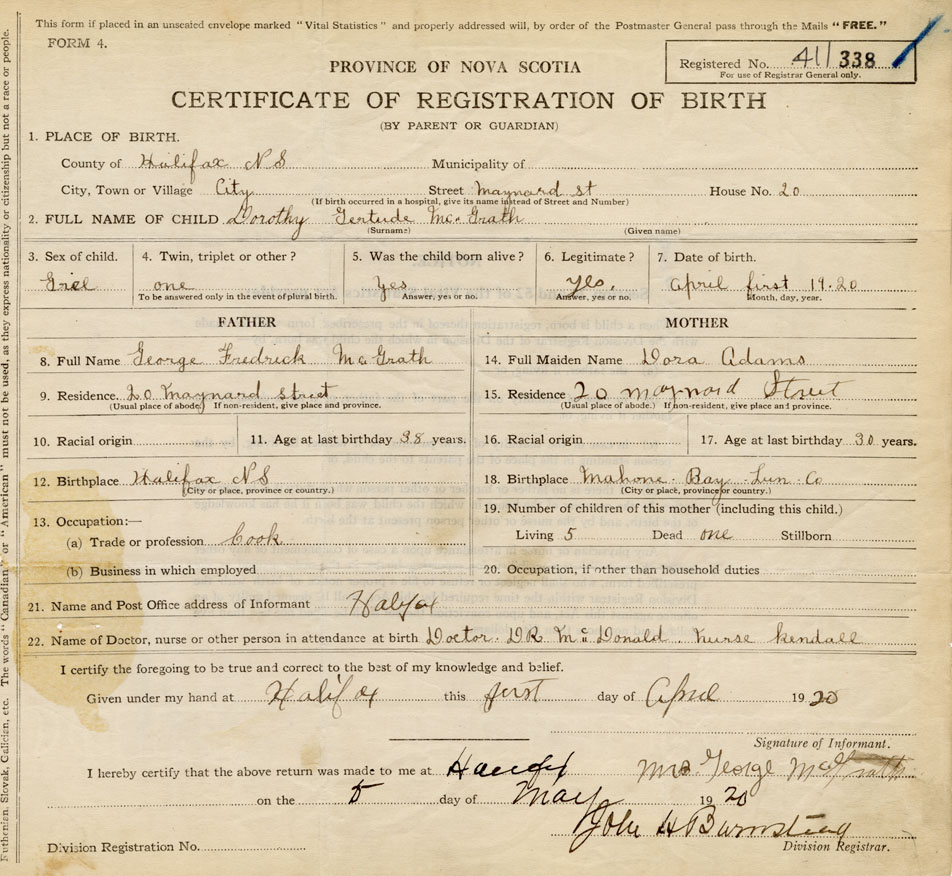 This form if placed in an unsealed envelope marked "Vital Statistics" and properly addressed will, by order of the Postmaster General pass through the Mails "FREE."
FORM 4.
Registered No. 411 338
For use of Registrar General only.
PROVINCE OF NOVA SCOTIA
CERTIFICATE OF REGISTRATION OF BIRTH
(BY PARENT OR GUARDIAN)
1. PLACE OF BIRTH.
County of Halifax N S Municipality of
City, Town or Village City Street Maynard st House No. 20
(If birth occurred in a hospital, give its name instead of Street and Number)
2. FULL NAME OF CHILD Dorothy Gertude Mc Grath
(Surname) (Given name)
3. Sex of child. 4. Twin, triplet or other? 5. Was the child born alive? 6. Legitimate? 7. Date of birth.
Girl one Yes Yes. April first 1920
To be answered only in the event of plural birth. Answer, yes or no. Answer, yes or no. Month, day, year.
FATHER MOTHER
8. Full Name George Fredrick Mc Grath 14. Full Maiden Name Dora Adams
9. Residence 20 Maynard street 15. Residence 20 maynard Street
(Usual place of abode) If non-resident, give place and province. (Usual place of abode.) If non-resident, give place and province.
10. Racial origin 11. Age at last birthday 38 years. 16. Racial origin 17. Age at last birthday 30 years.
12. Birthplace Halifax N S 18. Birthplace Mahone Bay Lun Co
(City or place, province or country.) (City or place, province or country.)
13. Occupation:— 19. Number of children of this mother (including this child.)
(a) Trade or profession Cook Living 5 Dead one Stillborn
(b) Business in which employed 20. Occupation, if other than household duties
21. Name and Post Office address of Informant Halifax
22. Name of Doctor, nurse or other person in attendance at birth Doctor. DR Mc Donald. nurse kendall
I certify the foregoing to be true and correct to the best of my knowledge and belief.
Given under my hand at Halifax this first day of April 1920
Signature of Informant.
I hereby certify that the above return was made to me at Mrs George McGrath
on the 5 day of May 1920
John H Barnstead
Division Registration No. Division Registrar.
Ruthenian, Slovak, Galician, etc. The words "Canadian" or "American" must not be used, as they express nationality or citizenship but not a race or people.